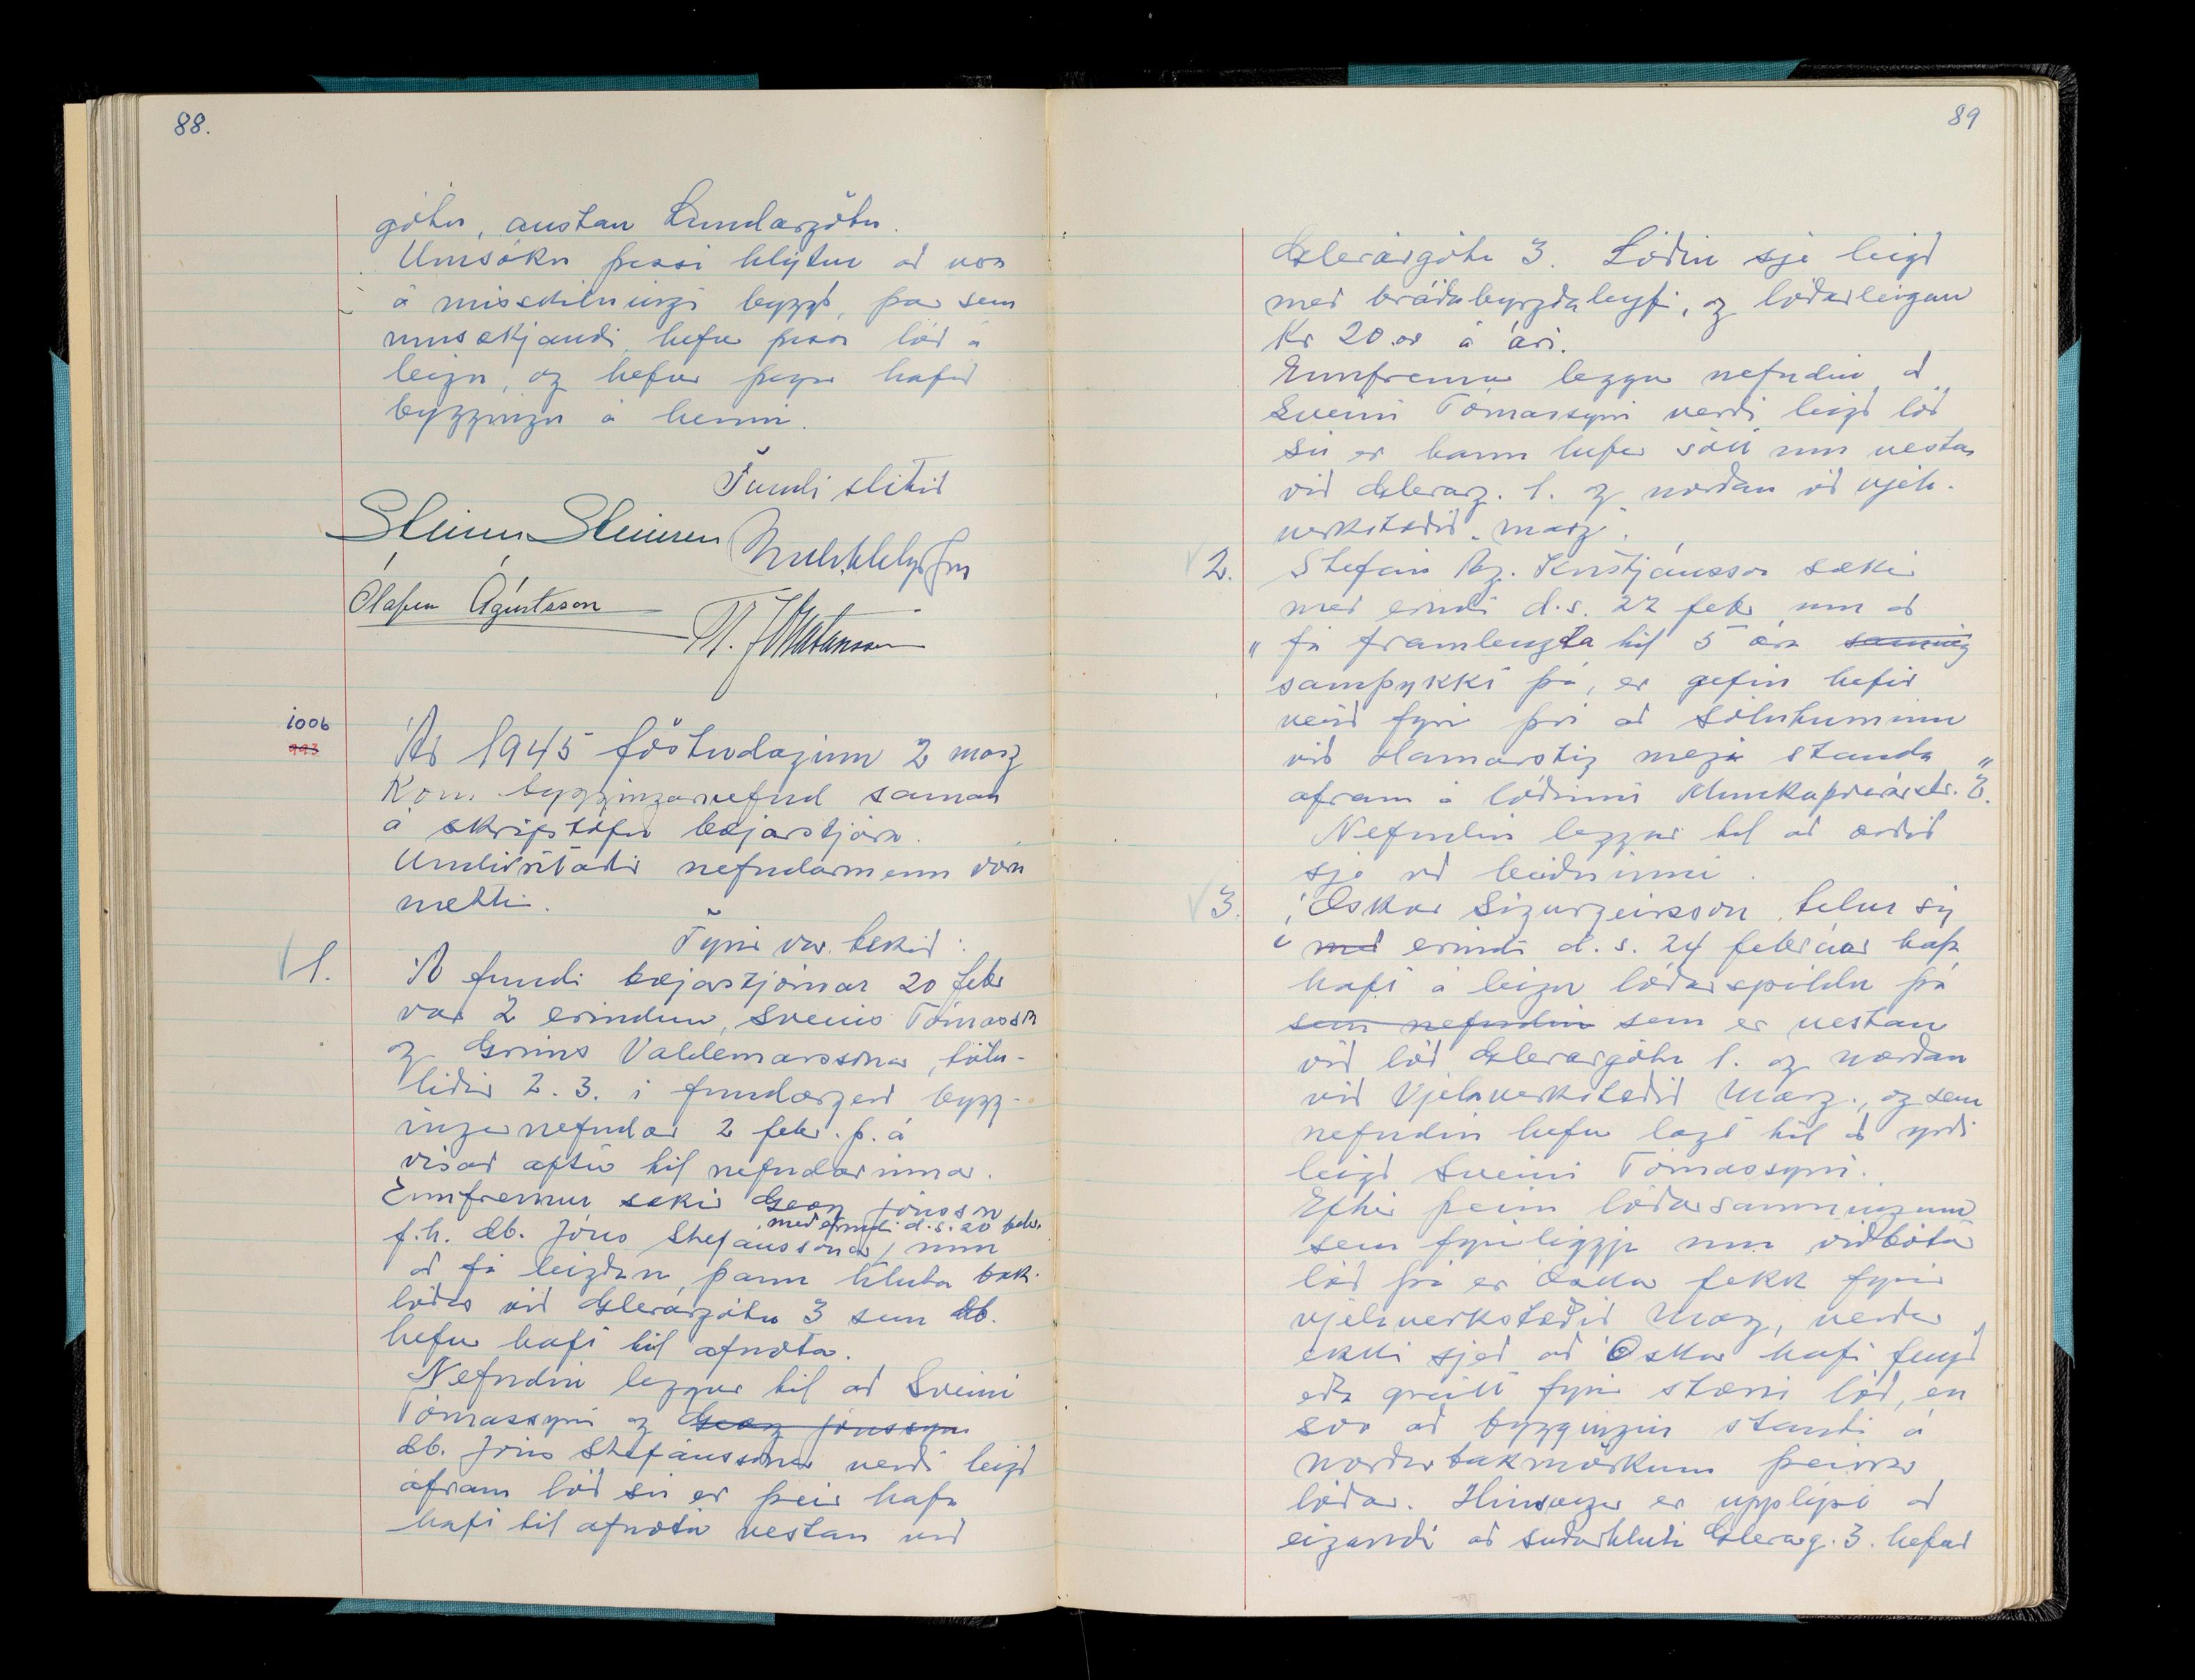 88.
götu, austan Lundargötu.
Umsókn þessi hlýtur að vera
á misskilningi byggð, þar sem
umsækjandi hefur þessa lóð á
leigu, og hefur þegar hafið
byggingu á henni.
Fundi slitið
Steinn Steinsen
Ólafur Ágústsson
1006
993
Ár 1945 föstudaginn 2 marz
kom bygginganefnd saman
á skrifstofu bæjarstjóra.
Undirritaðir nefndarmenn voru
mættir.
Fyrir var tekið:
1. Á fundi bæjarstjórnar 20 febr
var 2 erindum, Sveins Tómasson
og Gríms Valdemarssonar, tölu-
liðir 2. 3. í fundargerð bygg-
inganefndar 2 febr. þ. á
vísað aftur til nefndarinnar.
Ennfremur sækir Georg Jónsson
með erindi d.s. 20 febr.
f.h. db. Jóns Stefánssonar, um
að fá leigðan þann hluta bak-
lóðar við Glerárgötu 3 sem db.
hefur haft til afnota.
Nefndin leggur til að Sveini
Tómassyni og Georg Jónssyni
db. Jóns Stefánssonar verði leigð
áfram lóð sú er þeir hafa
haft til afnota vestan við
89
Glerárgötu 3. Lóðin sje leigð
með bráðabyrgðaleyfi, og lóðarleigan
Kr 20.00 á ári.
Ennfremur leggur nefndin að
Sveini Tómassyni verði leigð lóð
sú er hann hefur sótt um vestan
við Glerárg. 1. og norðan við vjela-
verkstæðið "Marz".
2. Stefán Ág. Kristjánsson sækir
með erindi d.s. 27 febr um að
" fá framlengda til 5 ára samning
samþykkt þá, er gefin hefir
verið fyrir því að söluturninn
við Hamarstíg megi standa
áfram á lóðinni Munkaþverárstr. 2."
Nefndin leggur til að orðið
sje við beiðninni.
3. Óskar Sigurgeirsson telur sig
í með erindi d.s. 24 febrúar hafa
haft á leigu lóðarspildu þá
sem nefndin sem er vestan
við lóð Glerárgötu 1. og norðan
við Vjelaverkstæðið Marz., og sem
nefndin hefur lagt til að yrði
leigð Sveini Tómassyni.
Eftir þeim lóðarsamningum
sem fyrirliggja um viðbótar
lóð þá er Óskar fekk fyrir
vjelaverkstæðið Marz, verður
ekki sjeð að Óskar hafi fengið
eða greitt fyrir stærri lóð, en
svo að byggingin standi á
norðurtakmörkum þeirrar
lóðar. Hinsvegar er upplýst að
eigandi að suðurhluta Glerárg. 3. hefur